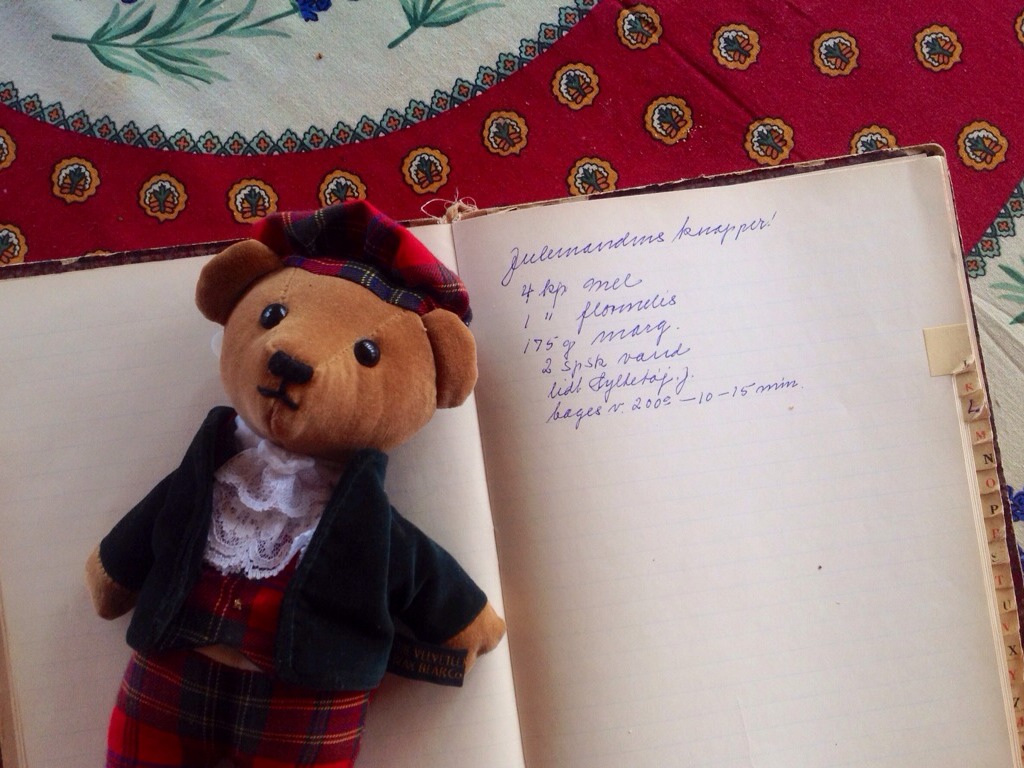 Julemandens knapper!
4 kp mel
1 " flormelis
175 g marg.
2 spsk vand
lidt Syltetøj.
bages v. 200° - 10 - 15 min.
VELVETEEN
BEAR Co
K
L
M
N
O
P
R
S
T
U
V
X
Y